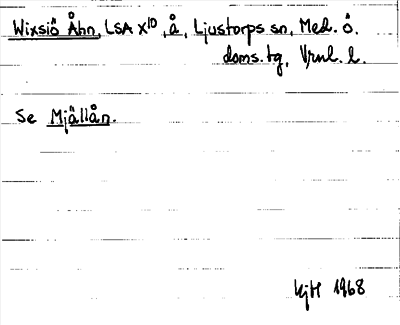 Wixsiö Åhn, LSA X10, å, Ljustorps sn, Med. ö.
doms. tg, Vrnl. l.
Se Mjällån.
KjH 1968